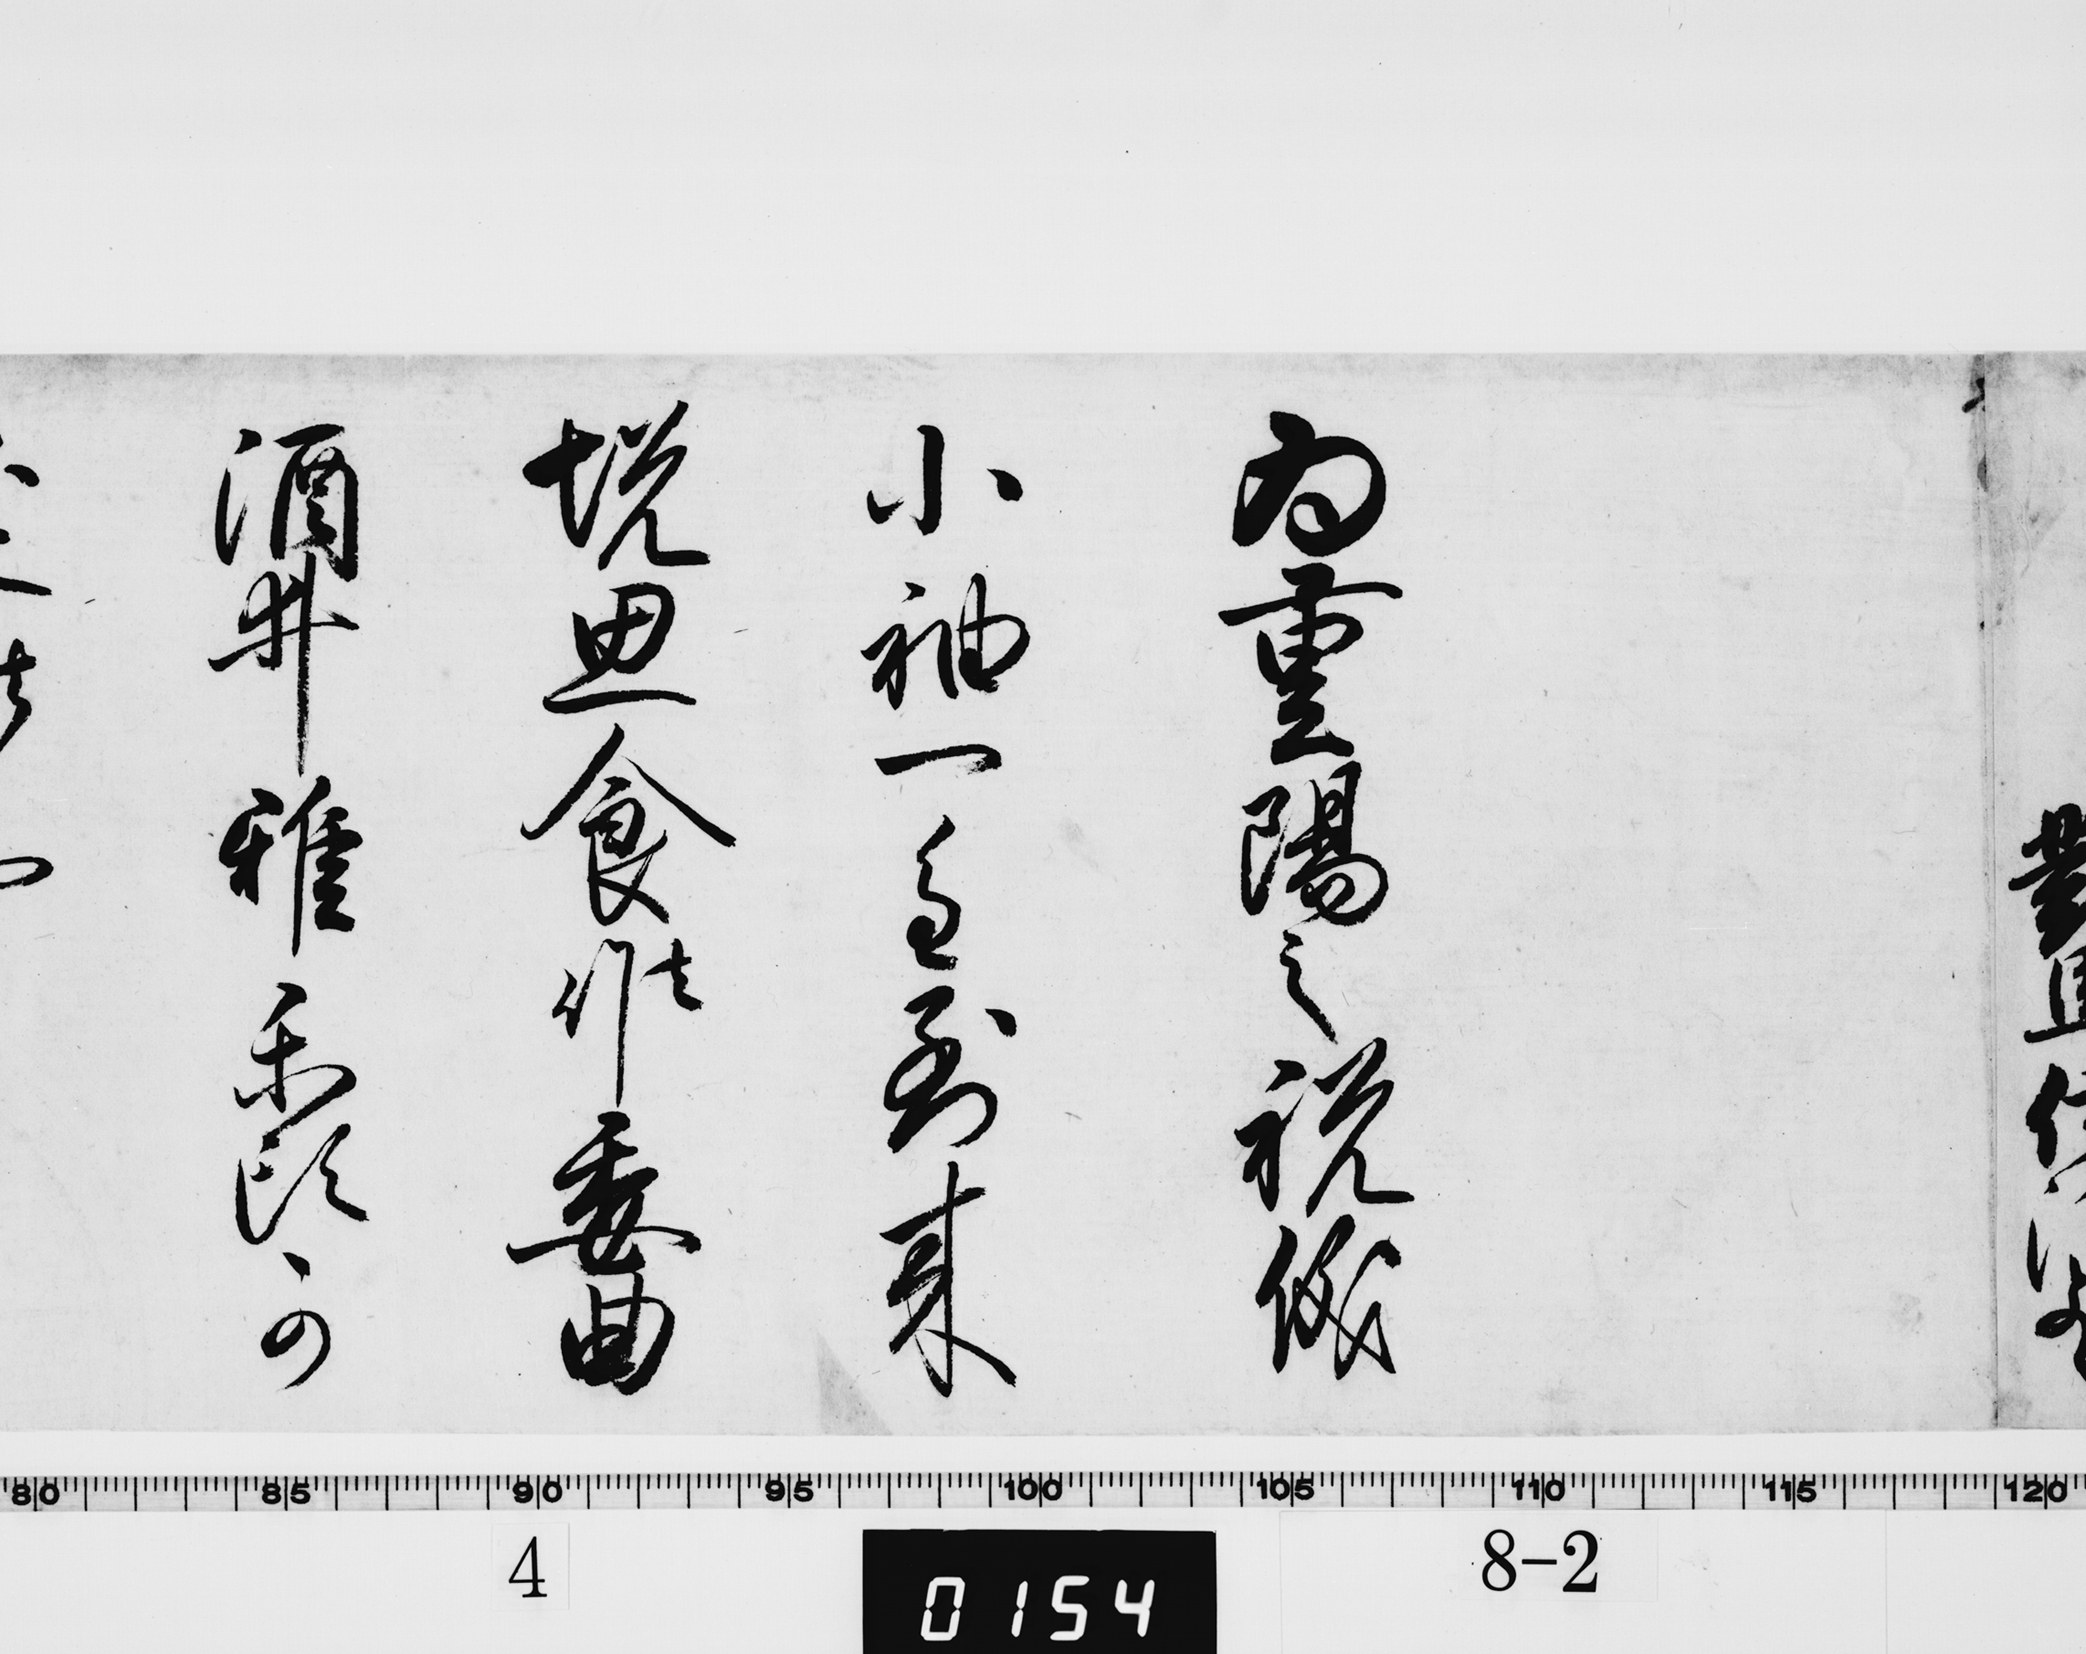 為重陽之祝儀
小袖一重到来
悦思食候委曲
酒井雅楽頭可
80 85 90 95 100 105 110 115 120
4
0154
8-2